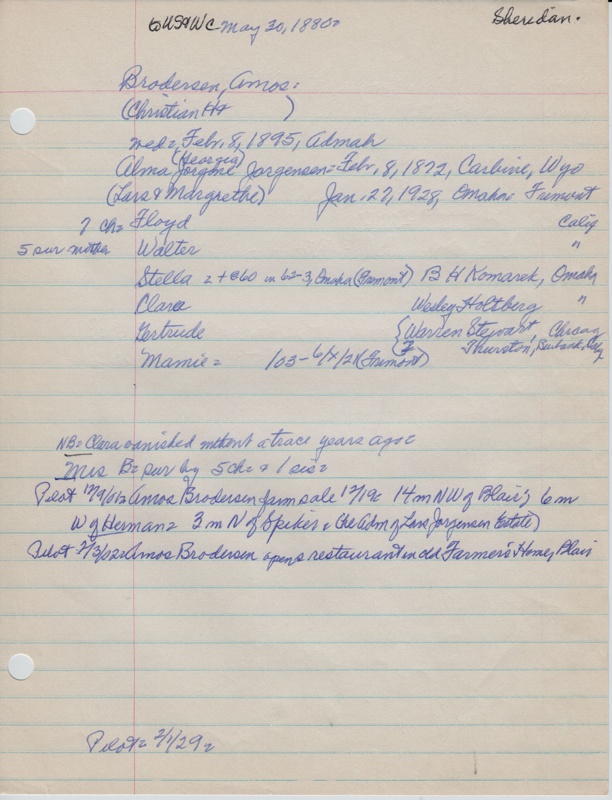 to US & WC May 30, 1880= Sheridan.
Brodersen, Amos:
(Christian )
wed= Febr. 8, 1895, Admah
(Georgia)
Alma Jorgine Jorgensen= Febr. 8, 1872, Carbine, Wyo
(Lars & Margrethe) Jan. 27, 1928, Omaha= Fremont
7 ch= Floyd Calif
5 sur mother Walter "
Stella = + c60 in 62-3, Omaha (Fremont) B H Komarek, Omaha
Clara Wesley Holtberg "
Gertrude {Warren Stewart, Chicago
Mamie= 103-6/X/21 (Fremont) { ? Thurston, Burbank, Calif
NB= Clara vanished without a trace years ago=
Mrs B= sur by 5 ch= & 1 sis=
Pilot 12/9/01= Amos Brodersen farm sale 12/19= 14 m NW of Blair; 6 m
W of Herman= 3 m N of Spiker & (he Adm of Lars Jorgensen Estate)
Pilot 2/13/02= Amos Brodersen opens restaurant in old Farmer's Home, Blair
Pilot= 2/1/29=